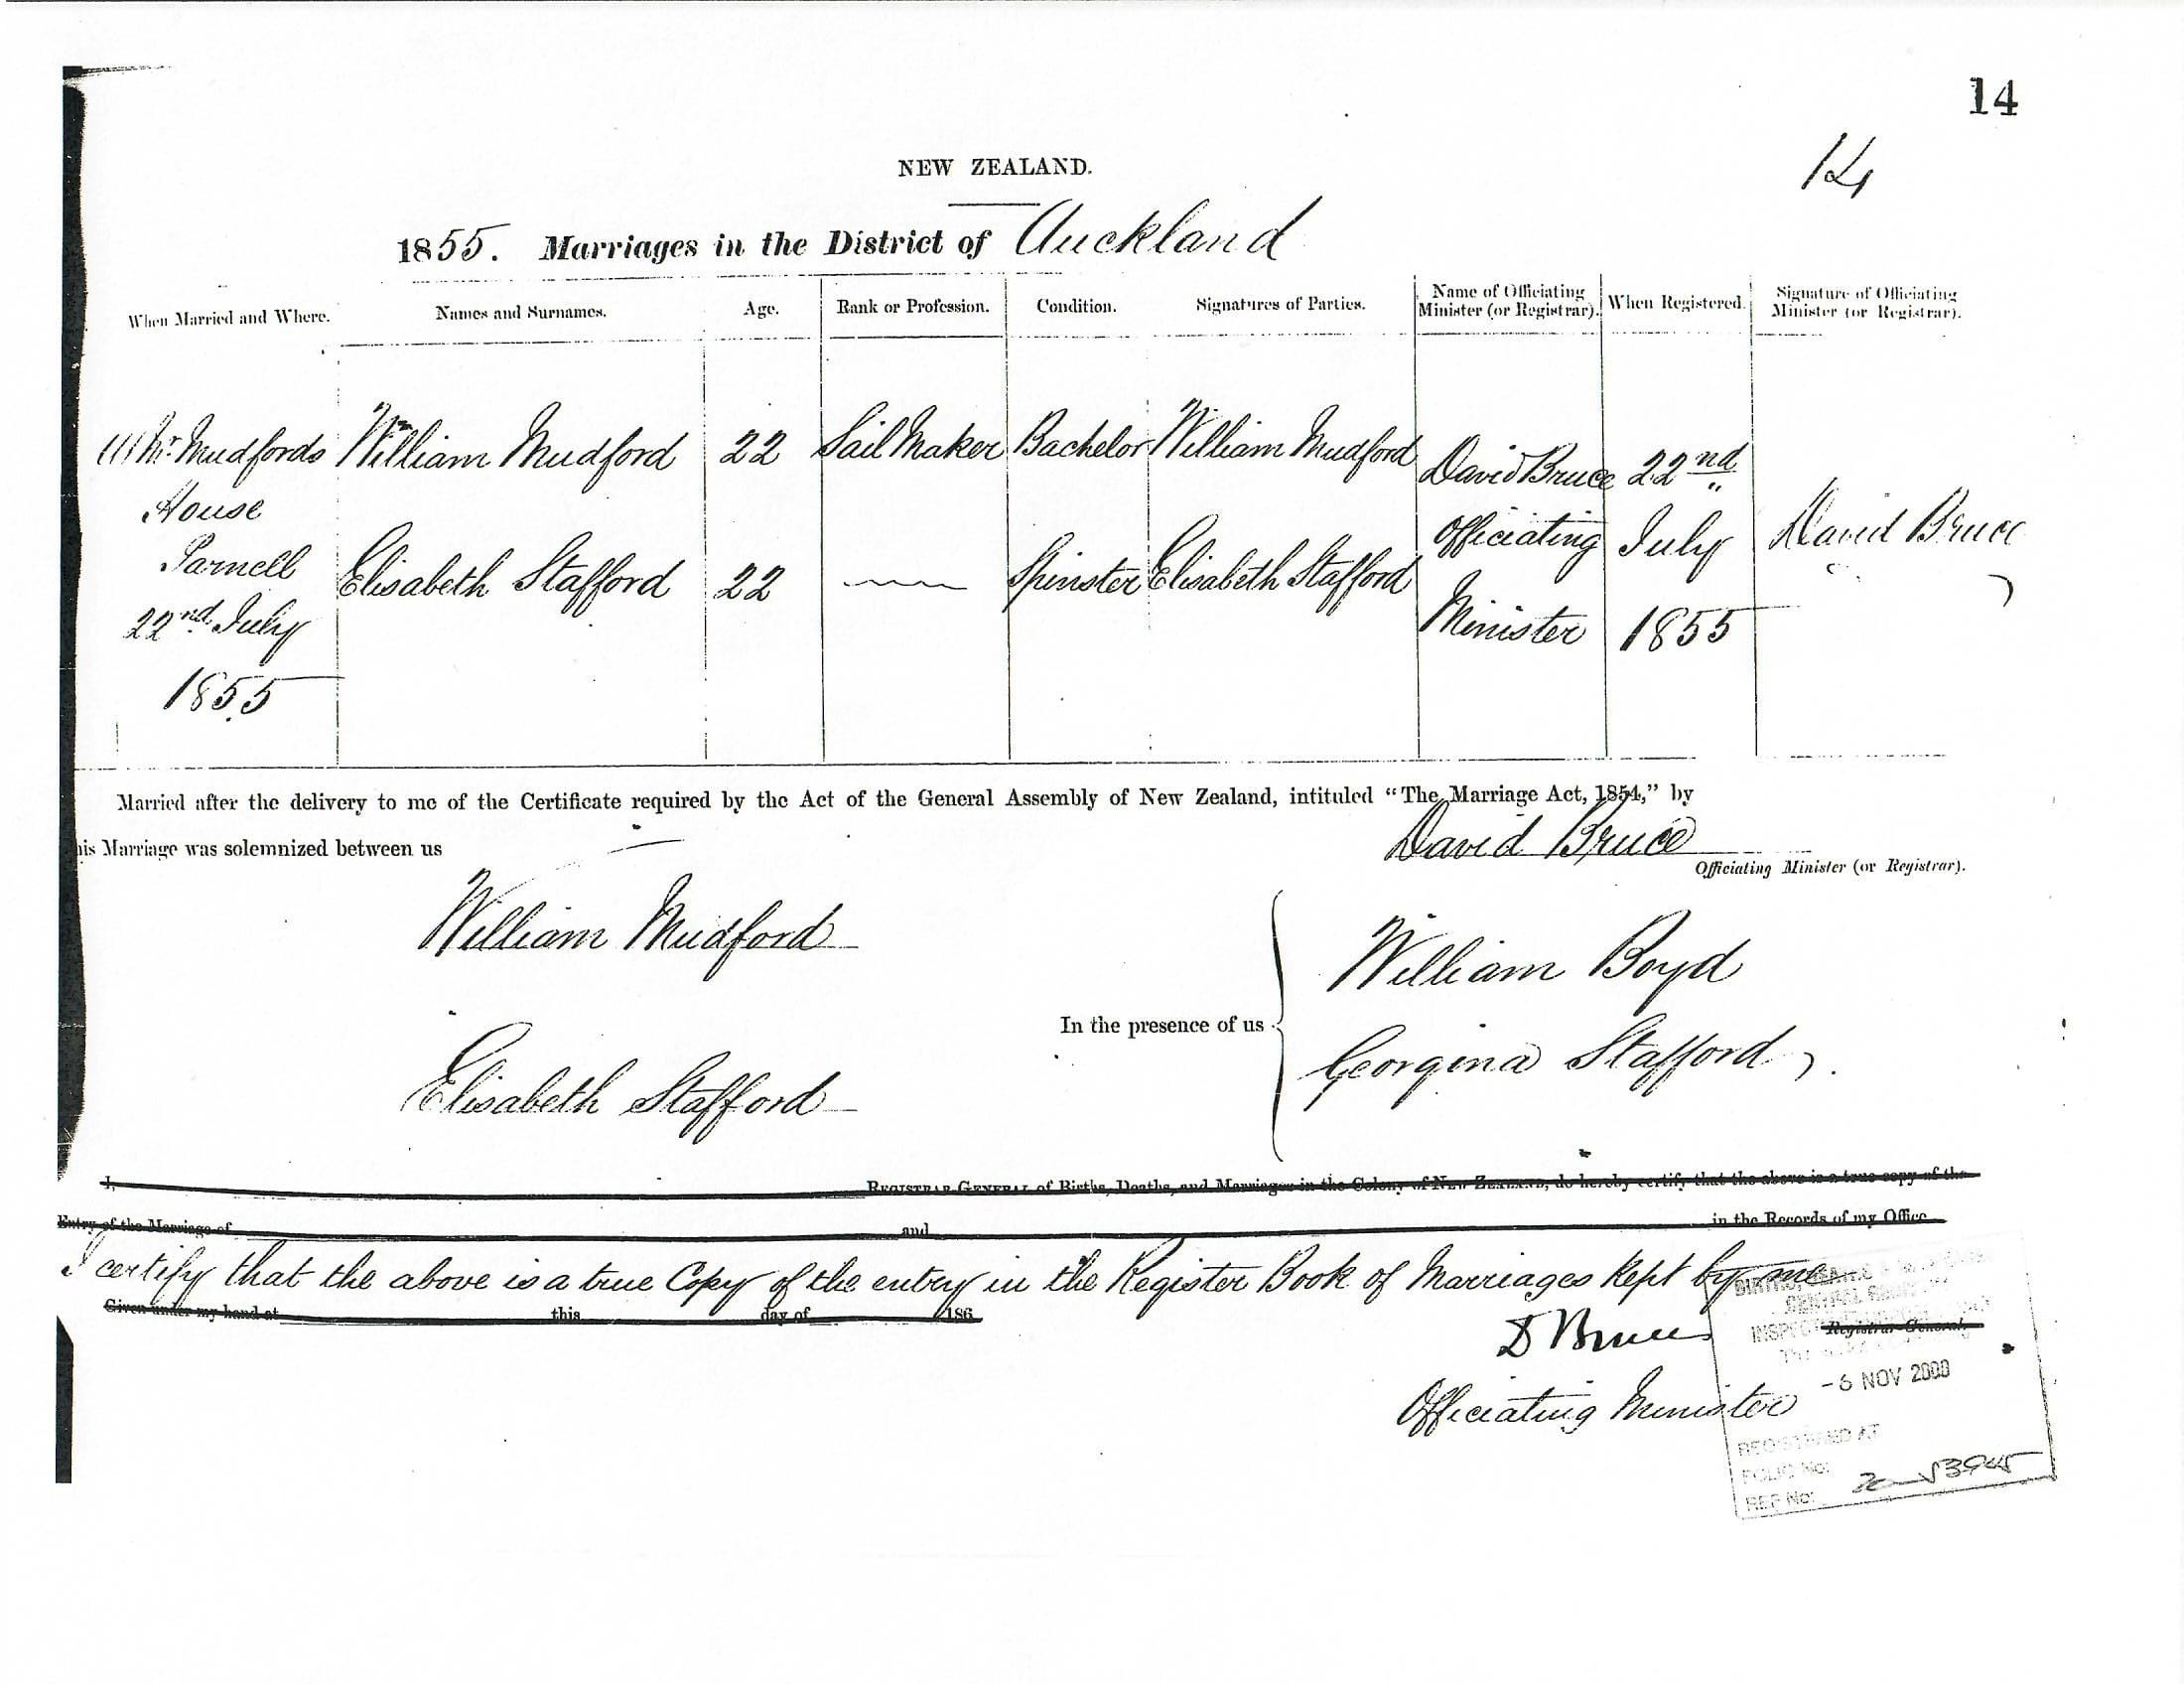 14
14
NEW ZEALAND.
1855. Marriages in the District of Auckland
When Married and Where. Names and Surnames. Age. Rank or Profession. Condition. Signatures of Parties. Name of Officiating Minister (or Registrar). When Registered. Signature of Officiating Minister (or Registrar).
Mr. Mudfords William Mudford 22 Sail Maker Bachelor William Mudford David Bruce 22nd
House Officiating July David Bruce
Parnell Elisabeth Stafford 22 Spinster Elisabeth Stafford Minister 1855
22nd July
1855
Married after the delivery to me of the Certificate required by the Act of the General Assembly of New Zealand, intituled "The Marriage Act, 1854," by
David Bruce
Officiating Minister (or Registrar).
his Marriage was solemnized between us
William Mudford
Elisabeth Stafford
In the presence of us
William Boyd
Georgina Stafford
I, REGISTRAR GENERAL of Births, Deaths, and Marriages in the Colony of NEW ZEALAND, do hereby certify that the above is a true copy of the
Entry of the Marriage of and in the Records of my Office
I certify that the above is a true Copy of the entry in the Register Book of Marriages kept by me
Given under my hand at this day of 186
D Bruce
Registrar-General.
Officiating Minister
-6 NOV 2000
REGISTERED AT
FOLIO No:
REF No: